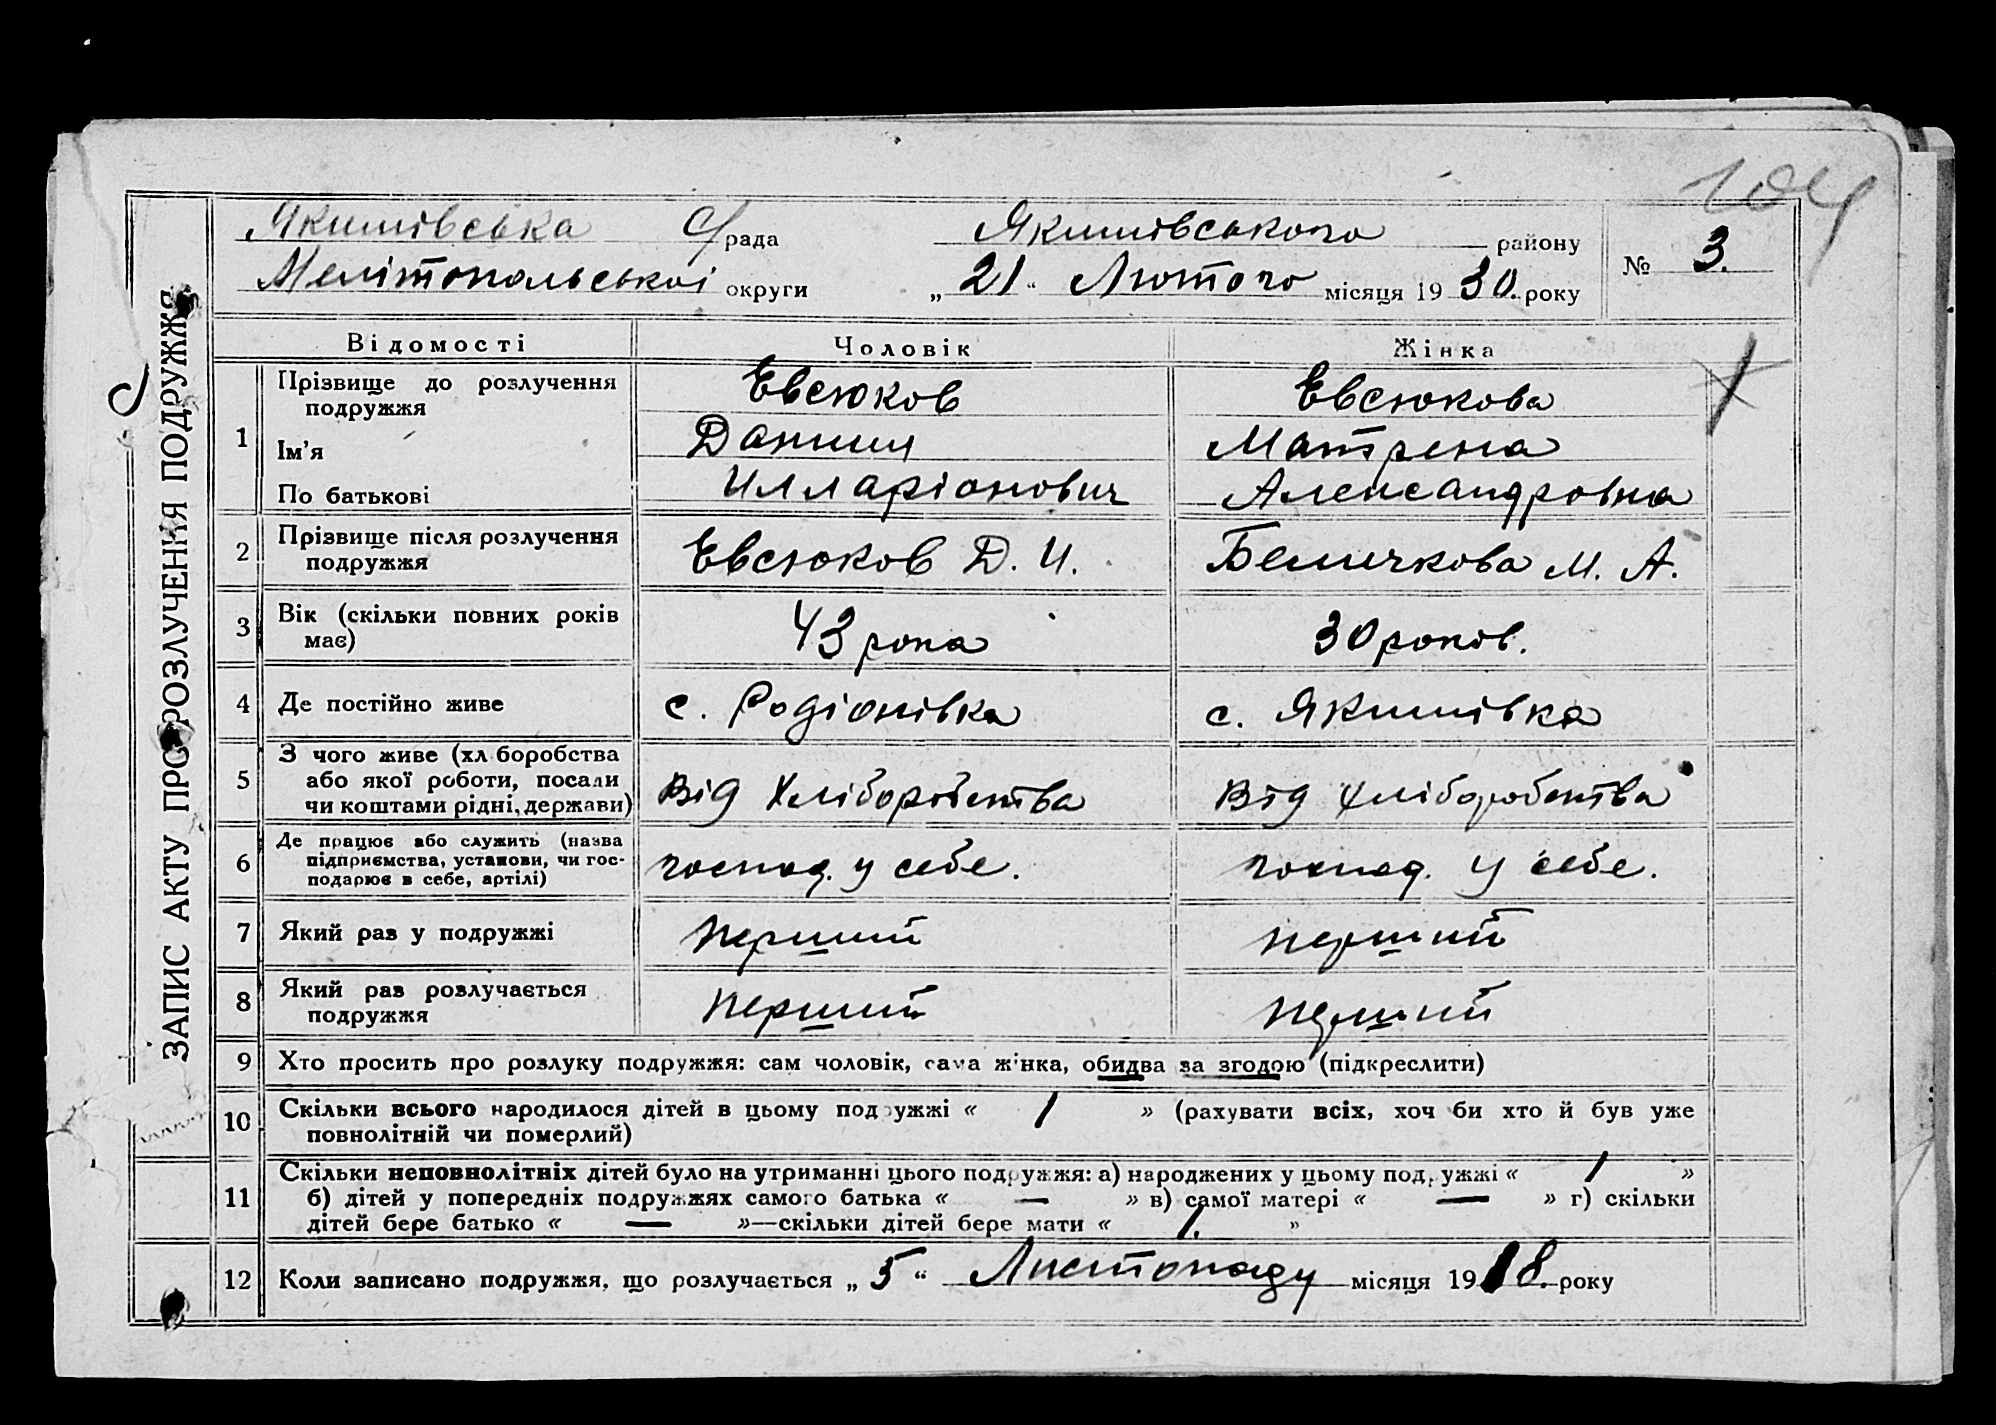 104
Якимівська С/рада Якимівського району
№ 3.
Мелітопольської округи „ 21 “ Лютого місяця 1930. року
ЗАПИС АКТУ ПРО РОЗЛУЧЕННЯ ПОДРУЖЖЯ
Відомості Чоловік Жінка
1 Прізвище до розлучення подружжя Евсюков Евсюкова
Ім’я Данил Матрена
По батькові Илларіонович Александровна
2 Прізвище після розлучення подружжя Евсюков Д. И. Беличкова М. А.
3 Вік (скільки повних років має) 43 рока 30 років.
4 Де постійно живе с. Родіонівка с. Якимівка
5 З чого живе (хліборобства або якої роботи, посади чи коштами рідні, держави) Від Хліборобства Від хліборобства
6 Де працює або служить (назва підприємства, установи, чи господарює в себе, артілі) господ. у себе. господ. у себе.
7 Який раз у подружжі перший перший
8 Який раз розлучається подружжя перший перший
9 Хто просить про розлуку подружжя: сам чоловік, сама жінка, обидва за згодою (підкреслити)
10 Скільки всього народилося дітей в цьому подружжі « 1 » (рахувати всіх, хоч би хто й був уже
повнолітній чи померлий)
11 Скільки неповнолітніх дітей було на утриманні цього подружжя: а) народжених у цьому подружжі « 1 »
б) дітей у попередніх подружжях самого батька « — » в) самої матері « — » г) скільки
дітей бере батько « — »—скільки дітей бере мати « 1. »
12 Коли записано подружжя, що розлучається „ 5 “ Листопаду місяця 1918. року